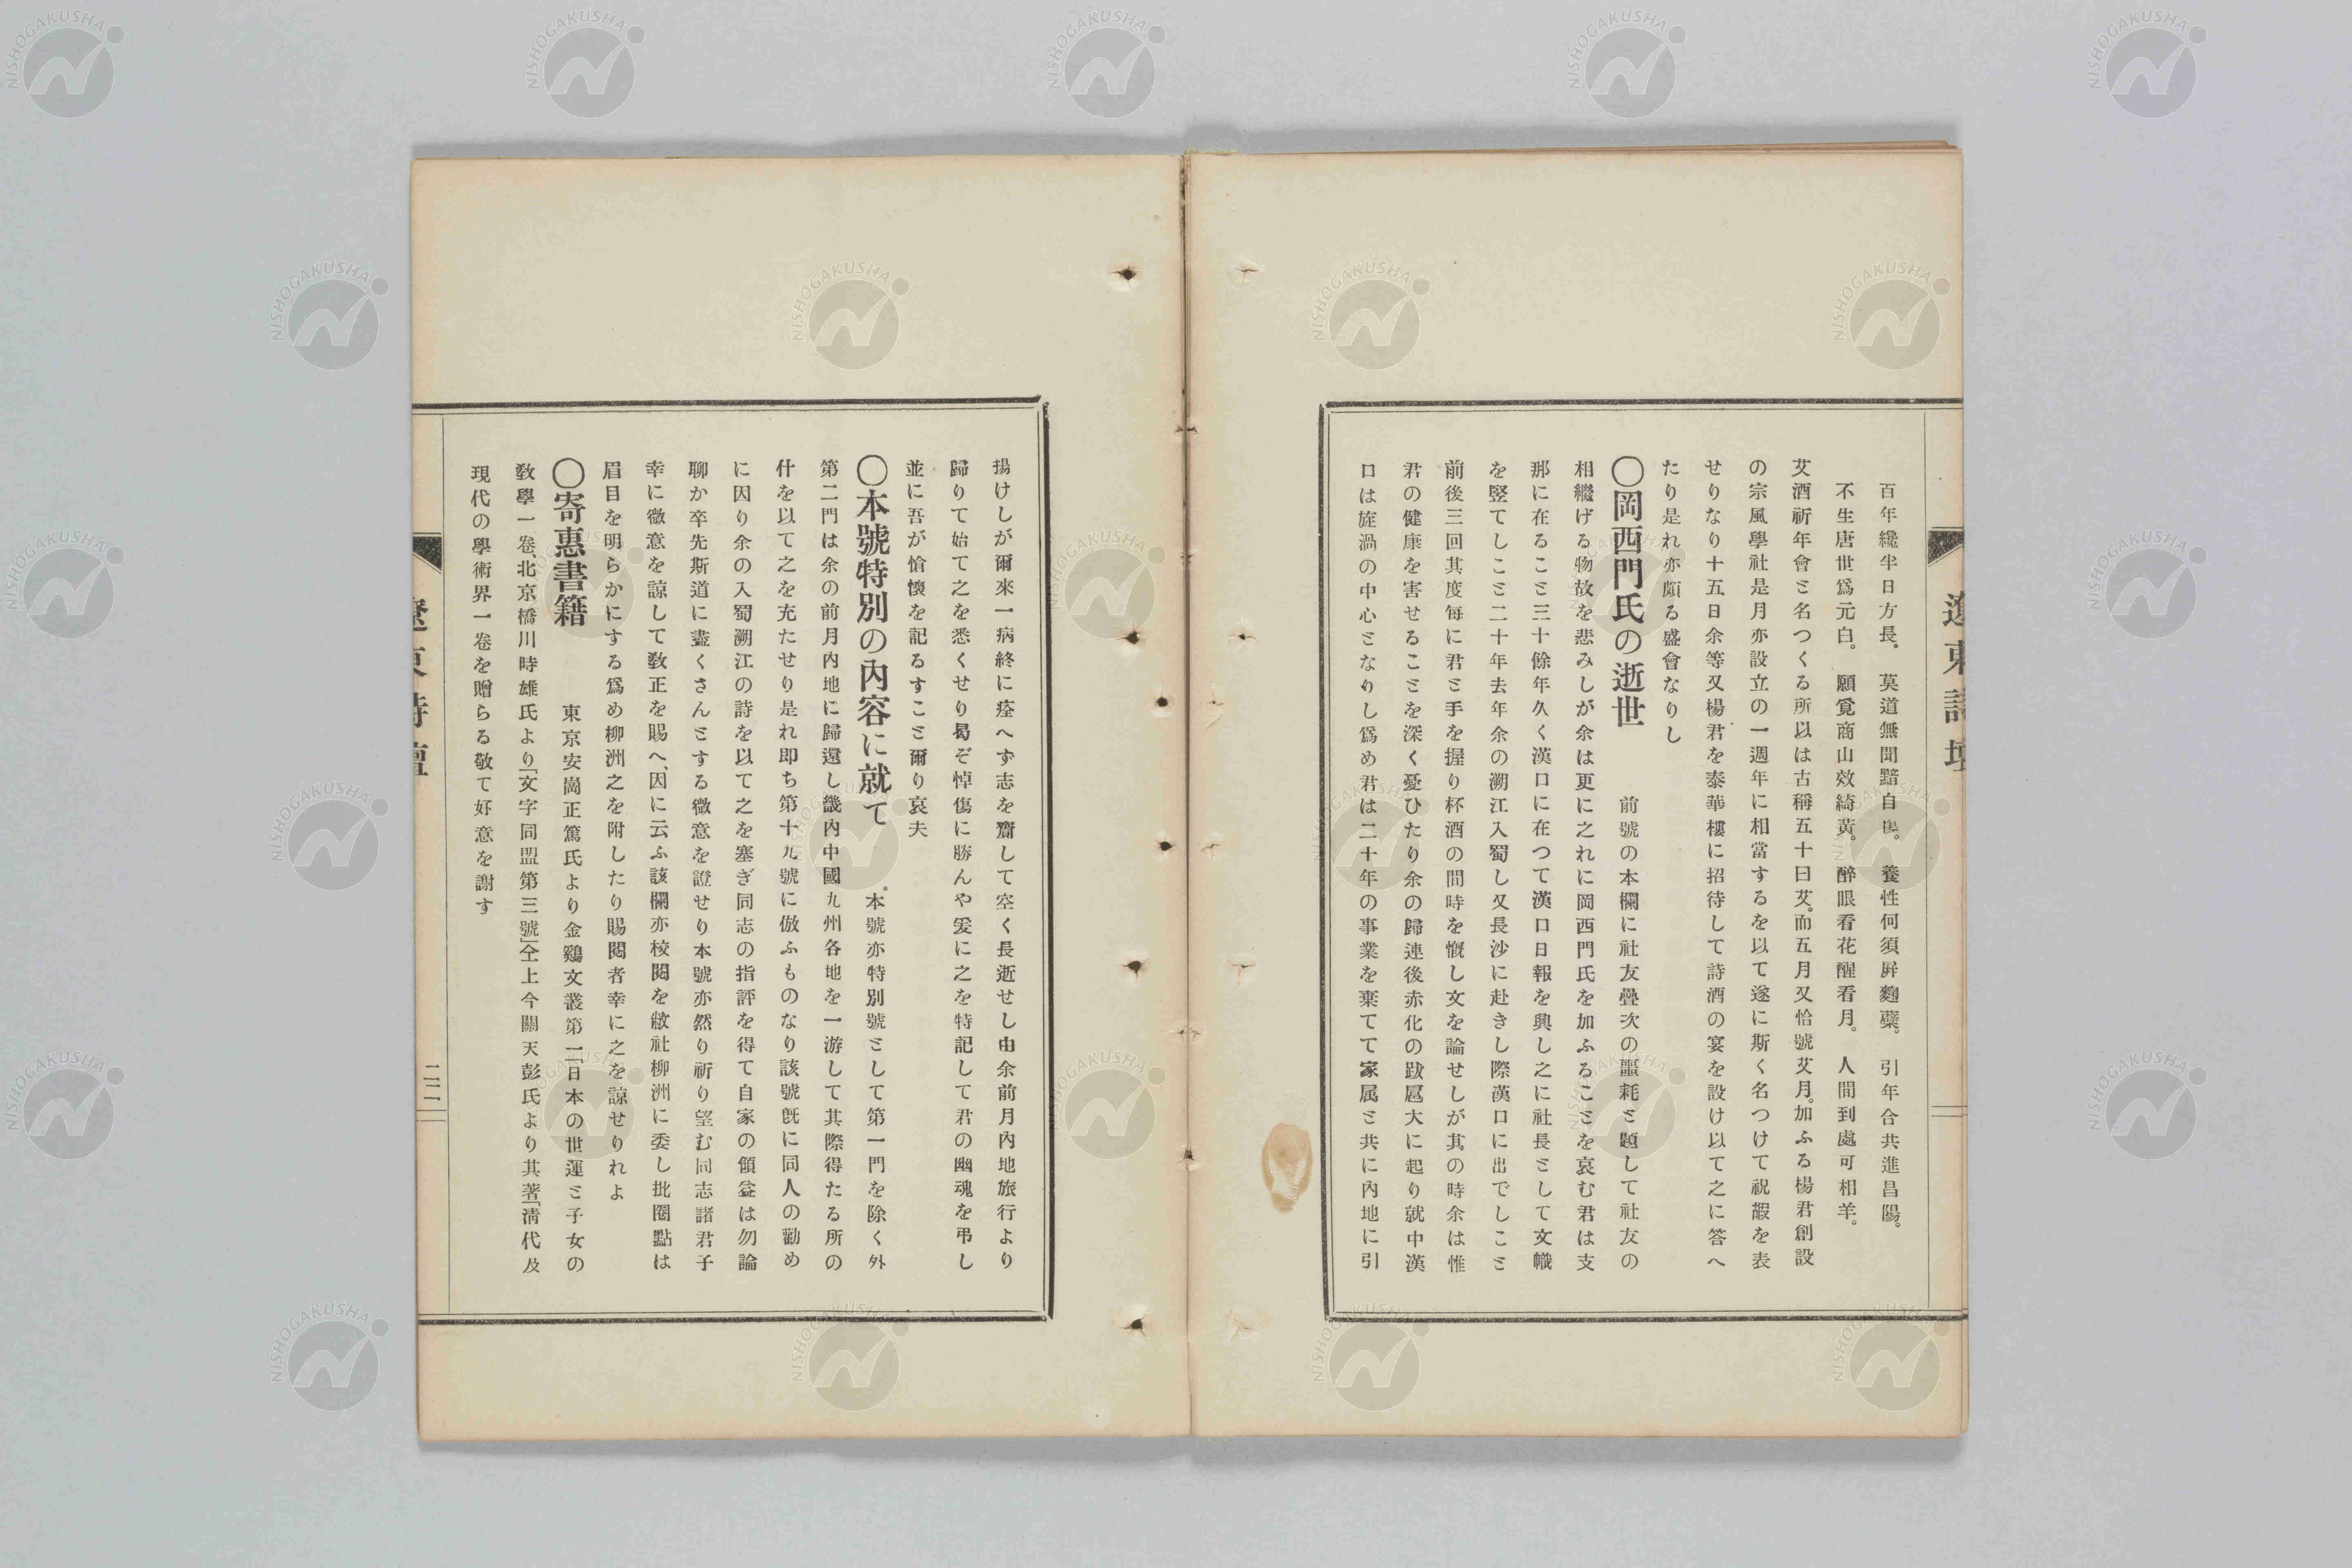 百年纔半日方長。　莫道無聞黯自傷。　養性何須屏麴蘗。　引年合共進昌陽。
不生唐世爲元白。　願覓商山效綺黃。　醉眼看花醒看月。　人間到處可相羊。
艾酒祈年會と名つくる所以は古稱五十曰艾。而五月又恰號艾月。加ふる楊君創設
の宗風學社是月亦設立の一週年に相當するを以て遂に斯く名つけて祝嘏を表
せりなり十五日余等又楊君を泰華樓に招待して詩酒の宴を設け以て之に答へ
たり是れ亦頗る盛會なりし
〇岡西門氏の逝世　前號の本欄に社友疊次の噩耗と題して社友の
相繼げる物故を悲みしが余は更に之れに岡西門氏を加ふることを哀む君は支
那に在ること三十餘年久く漢口に在つて漢口日報を興し之に社長として文幟
を竪てしこと二十年去年余の溯江入蜀し又長沙に赴きし際漢口に出でしこと
前後三回其度每に君と手を握り杯酒の間時を慨し文を論せしが其の時余は惟
君の健康を害せることを深く憂ひたり余の歸連後赤化の跋扈大に起り就中漢
口は旋渦の中心となりし爲め君は二十年の事業を棄てて家属と共に內地に引
遼東詩壇
揚けしが爾來一病終に痊へず志を齎して空く長逝せし由余前月內地旅行より
歸りて始て之を悉くせり曷ぞ悼傷に勝んや爰に之を特記して君の幽魂を弔し
並に吾が愴懷を記るすこと爾り哀夫
〇本號特別の內容に就て　本號亦特別號として第一門を除く外
第二門は余の前月內地に歸還し畿內中國九州各地を一游して其際得たる所の
什を以て之を充たせり是れ即ち第十九號に倣ふものなり該號旣に同人の勸め
に因り余の入蜀溯江の詩を以て之を塞ぎ同志の指評を得て自家の領益は勿論
聊か卒先斯道に盡くさんとする微意を證せり本號亦然り祈り望む同志諸君子
幸に微意を諒して敎正を賜へ、因に云ふ該欄亦校閱を敝社柳洲に委し批圈點は
眉目を明らかにする爲め柳洲之を附したり賜閱者幸に之を諒せりれよ
〇寄惠書籍　東京安崗正篤氏より金鷄文叢第一「日本の世運と子女の
敎學一卷、北京橋川時雄氏より「文字同盟第三號」仝上今關天彭氏より其著「淸代及
現代の學術界一卷を贈らる敬て好意を謝す
遼東詩壇
二二